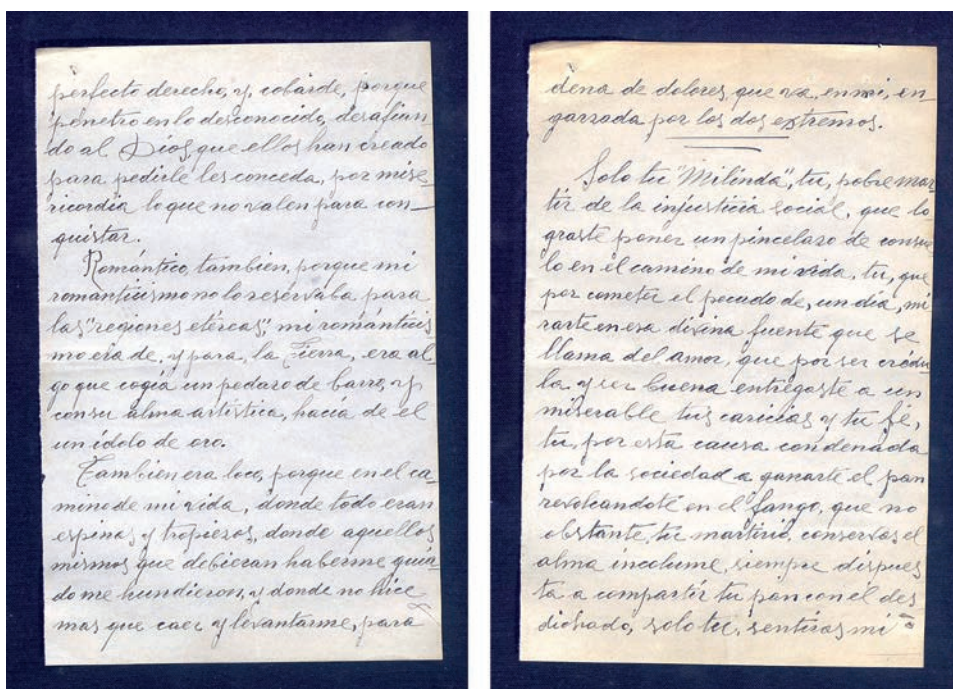 perfecto derecho, y, cobarde, porque
penetro en lo desconocido, desafian
do al Dios, que ellos han creado
para pedirle les conceda, por mise-
ricordia lo que no valen para con-
quistar.
Romántico, tambien, porque mi
romanticismo no lo reservaba para
las "regiones etéreas", mi románticis
mo era de, y para, la Tierra, era al
go que cogía un pedazo de barro, y,
con su alma artística, hacía de el
un ídolo de oro.
Tambien era loco, porque en el ca
mino de mi vida, donde todo eran
espinas y tropiezos, donde aquellos
mismos que debieran haberme guia
do me hundieron, y donde no hice
mas que caer y levantarme, para
dena de dolores, que va, en mi, en-
garzada por los dos extremos.
Solo tu "Milinda", tu, pobre mar-
tir de la injusticia social, que lo
graste poner un pincelazo de consue
lo en el camino de mi vida, tu, que
por cometer el pecado de, un dia, mi
rarte en esa divina fuente que se
llama del amor, que por ser crédu
la y ser buena entregaste a un
miserable tus caricias y tu fé,
tu, por esta causa condenada
por la sociedad a ganarte el pan
revolcandote en el fango, que no
obstante, tu martirio, conservas el
alma incolume, siempre dispues
ta a compartir tu pan con el des
dichado, solo tu, sentiras mi